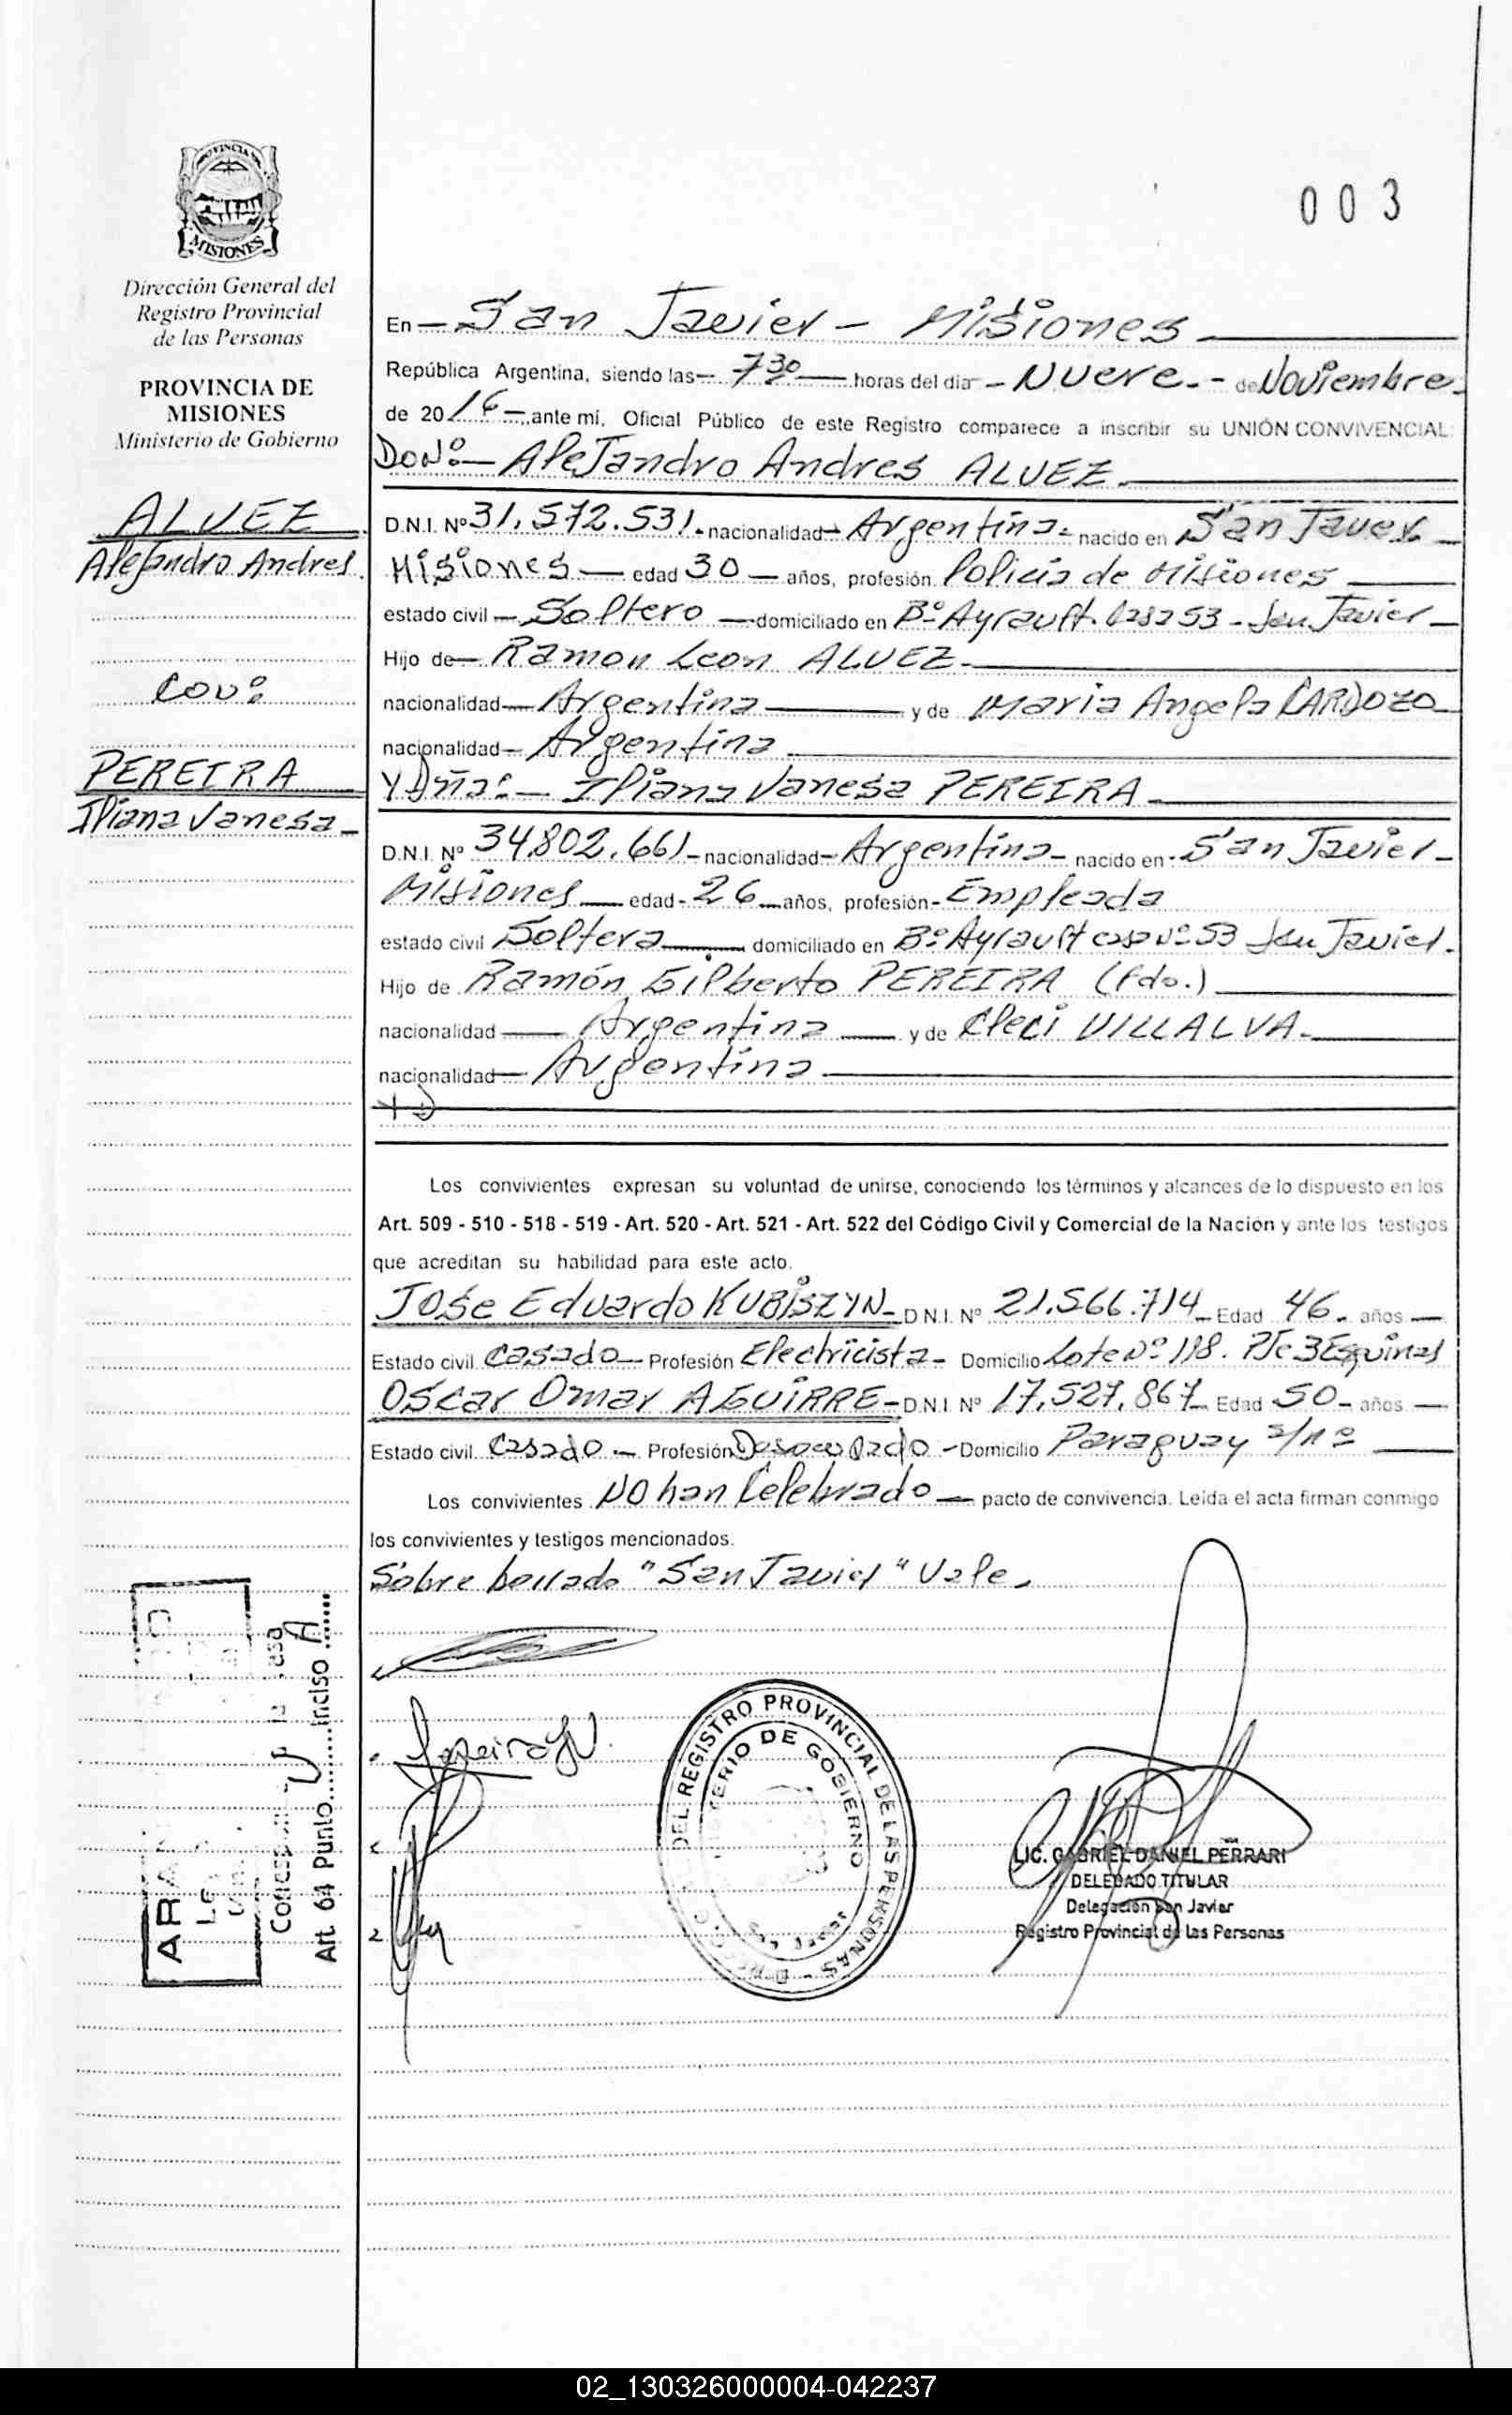 PROVINCIA DE
MISIONES
Dirección General del
Registro Provincial
de las Personas
PROVINCIA DE
MISIONES
Ministerio de Gobierno
ALVEZ
Alejandro Andres
Con:
PEREIRA
Iliana Vanesa-
003
En - San Javier - Misiones
República Argentina, siendo las 730 horas del día - Nueve. - de Noviembre
de 2016 - ante mi, Oficial Público de este Registro comparece a inscribir su UNIÓN CONVIVENCIAL:
Don: - Alejandro Andres ALVEZ
D.N.I. Nº 31.572.531.- nacionalidad - Argentina - nacido en San Javier -
Misiones - edad 30 - años, profesión Policia de Misiones
estado civil - Soltero - domiciliado en Bº Ayrault. casa 53 - San Javier -
Hijo de - Ramon Leon ALVEZ.-
nacionalidad - Argentina - y de Maria Angela CARDOZO
nacionalidad - Argentina
Y Dña: - Iliana Vanesa PEREIRA -
D.N.I. Nº 34.802.661 - nacionalidad - Argentina - nacido en - San Javier -
Misiones - edad - 26 - años, profesión - Empleada
estado civil Soltera - domiciliado en Bº Ayrault casa Nº 53 San Javier.
Hijo de Ramón Gilberto PEREIRA (fdo.)
nacionalidad - Argentina - y de Cleci VILLALVA.-
nacionalidad - Argentina
Los convivientes expresan su voluntad de unirse, conociendo los términos y alcances de lo dispuesto en los
Art. 509 - 510 - 518 - 519 - Art. 520 - Art. 521 - Art. 522 del Código Civil y Comercial de la Nación y ante los testigos
que acreditan su habilidad para este acto.
Jose Eduardo KUBISZYN - D.N.I. Nº 21.566.714 - Edad 46 - años -
Estado civil Casado - Profesión Electricista - Domicilio Lote Nº 118. Pje 3 Esquinas
Oscar Omar AGUIRRE - D.N.I. Nº 17.527.867 - Edad 50 - años -
Estado civil Casado - Profesión Desocupado - Domicilio Paraguay s/nº
Los convivientes NO han Celebrado - pacto de convivencia. Leída el acta firman conmigo
los convivientes y testigos mencionados.
Sobre borrado "San Javier" Vale.
Pereira IV
DEL REGISTRO PROVINCIAL DE LAS PERSONAS
MINISTERIO DE GOBIERNO
LIC. GABRIEL DANIEL PERRARI
DELEGADO TITULAR
Delegación San Javier
Registro Provincial de las Personas
Art. 64 Punto Inciso A
02_130326000004-042237